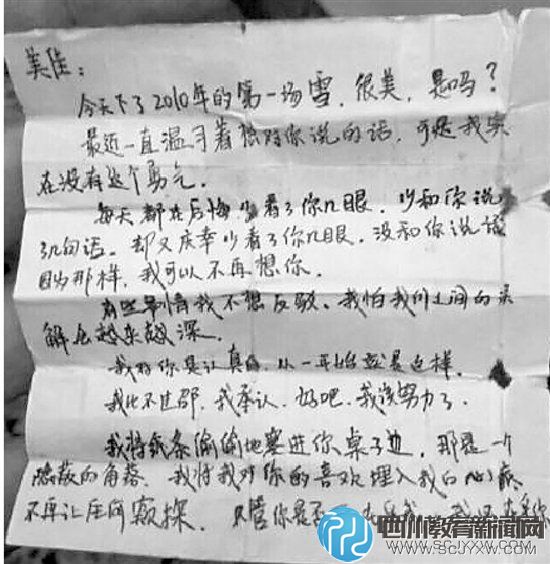 美佳：
今天下了2010年的第一场雪，很美，是吗？
最近一直温习着想对你说的话，可是我实
在没有这个勇气。
每天都在后悔少看了你几眼，少和你说
了几句话。却又庆幸少看了你几眼，没和你说话
因为那样，我可以不再想你。
有些事情我不想反驳，我怕我们之间的误
解会越来越深。
我对你是认真的，从一开始就是这样。
我比不过邵，我承认，好吧，我该努力了。
我将纸条偷偷地塞进你桌子边，那是一个
隐蔽的角落，我将我对你的喜欢埋入我的心底
不再让任何窥探。只管你是否
四川教育新闻网
WWW.SCJYXW.COM